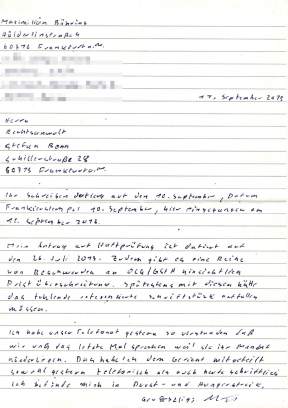 Maximilian Bähring
Hölderlinstraße 4
60316 Frankfurt a.M.
17. September 2013
Herrn
Rechtsanwalt
Stefan Bonn
Schillerstraße 28
60313 Frankfurt a.M.
Ihr Schreiben datierend auf den 10. September, Datum
Frankierstempel 10. September, hier eingegangen am
11. September 2013.
Mein Antrag auf Haftprüfung ist datiert auf
den 26. Juli 2013. Zudem gibt es eine Reihe
von Beschwerden an OLG/GStA hinsichtlich
Fristüberschreitung. Spätestens mit diesen hätte
das fehlende Schriftstück auffallen
müssen.
Ich habe unser Telefonat gestern so verstanden daß
wir uns das letzte Mal sprechen weil sie ihr Mandat
niederlegen. Das habe ich dem Gericht mitgeteilt
sowohl gestern telefonisch als auch heute schriftlich
Ich befinde mich in Durst- und Hungerstreik.